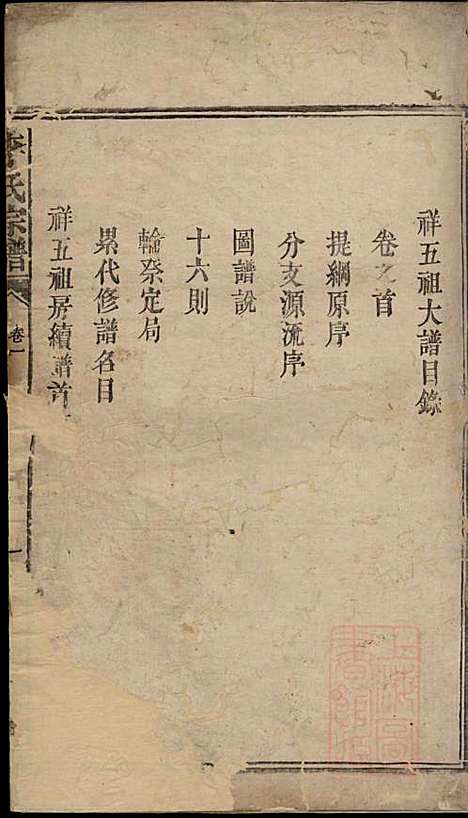 祥五祖大譜目錄
卷之首
提綱原序
分支源流序
圖譜說
十六則
輪祭定局
累代修譜名目
祥五祖房續譜首
李氏宗譜
卷一
上海圖書館藏